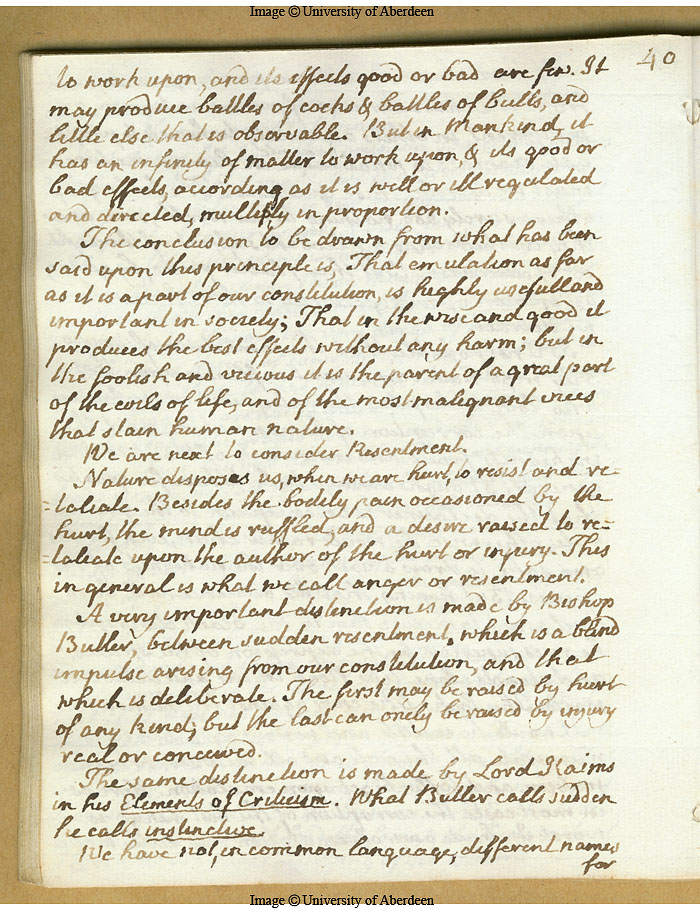 Image © University of Aberdeen
40
to work upon, and its effects good or bad are few. It
may produce battles of cocks & battles of bulls, and
little else that is observable. But in Mankind, it
has an infinity of matter to work upon, & its good or
bad effects, according as it is well or ill regulated
and directed, multiply in proportion.
The conclusion to be drawn from what has been
said upon this principle is, That emulation as far
as it is a part of our constitution, is highly usefull and
important in society; That in the wise and good it
produces the best effects without any harm; but in
the foolish and vicious it is the parent of a great part
of the evils of life, and of the most malignant vices
that stain human nature.
We are next to consider Resentment.
Nature disposes us, when we are hurt, to resist and re-
=taliate. Besides the bodily pain occasioned by the
hurt, the mind is ruffled, and a desire raised to re=
=taliate upon the author of the hurt or injury. This
in general is what we call anger or resentment.
A very important distinction is made by Bishop
Butler, between sudden resentment, which is a blind
impulse arising from our constitution, and that
which is deliberate. The first may be raised by hurt
of any kind; but the last can onely be raised by injury
real or conceived.
The same distinction is made by Lord Kaims
in his Elements of Criticism. What Butler calls sudden
he calls instinctive.
We have not, in common language, different names
for
Image © University of Aberdeen